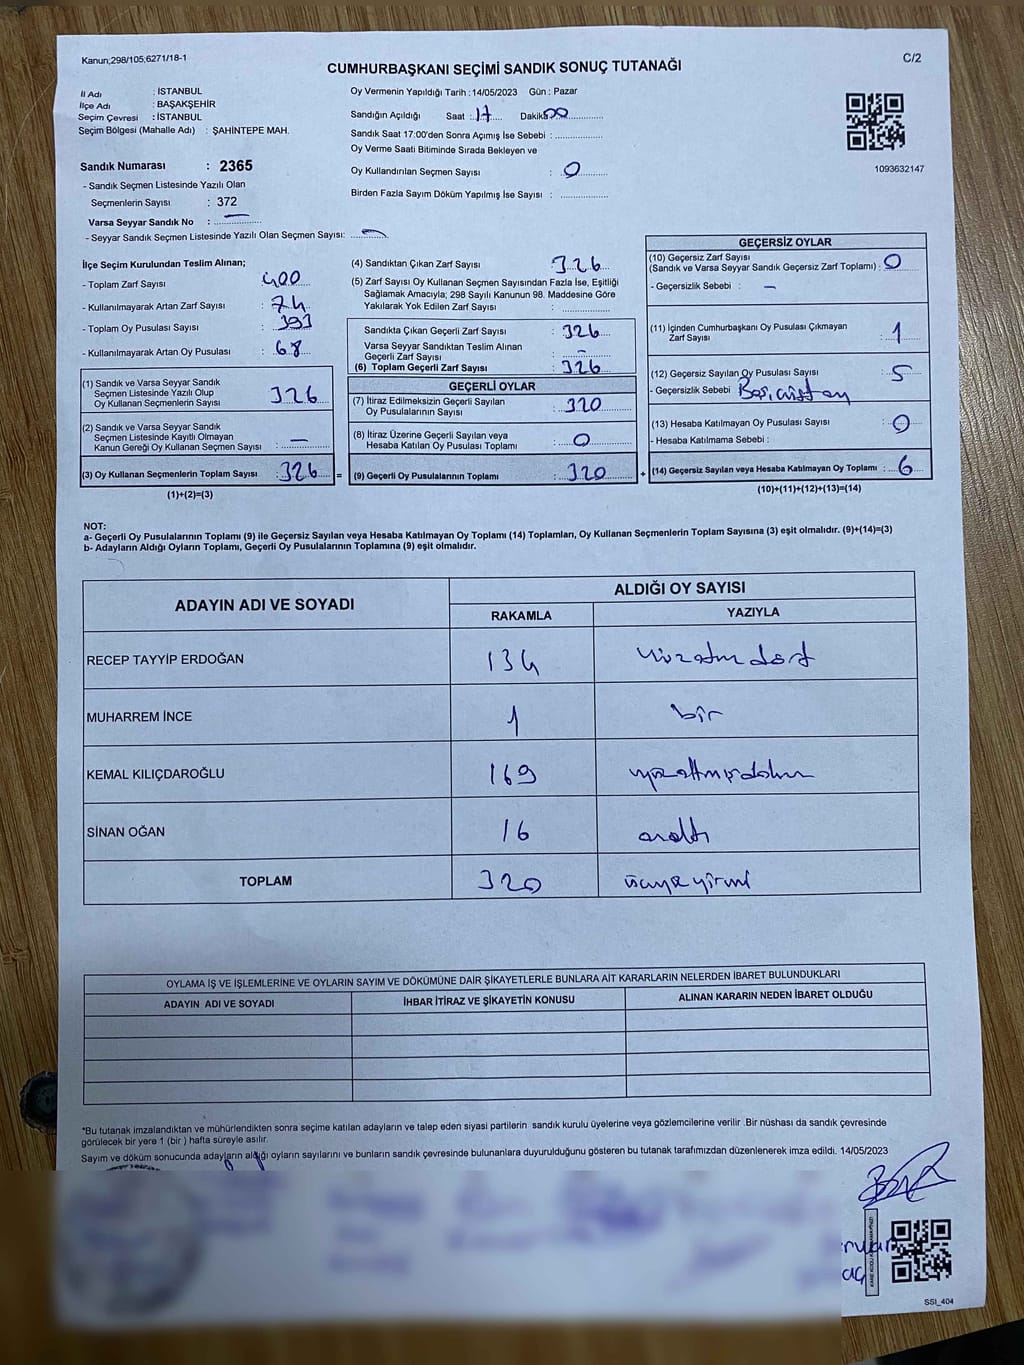 Kanun;298/105;6271/18-1
C/2
CUMHURBAŞKANI SEÇİMİ SANDIK SONUÇ TUTANAĞI
İl Adı : İSTANBUL
İlçe Adı : BAŞAKŞEHİR
Seçim Çevresi : İSTANBUL
Seçim Bölgesi (Mahalle Adı) : ŞAHİNTEPE MAH.
Sandık Numarası : 2365
- Sandık Seçmen Listesinde Yazılı Olan
Seçmenlerin Sayısı : 372
Varsa Seyyar Sandık No :
- Seyyar Sandık Seçmen Listesinde Yazılı Olan Seçmen Sayısı:
Oy Vermenin Yapıldığı Tarih : 14/05/2023 Gün : Pazar
Sandığın Açıldığı Saat : 17 Dakika 00
Sandık Saat 17:00'den Sonra Açımış İse Sebebi :
Oy Verme Saati Bitiminde Sırada Bekleyen ve
Oy Kullandırılan Seçmen Sayısı : 0
Birden Fazla Sayım Döküm Yapılmış İse Sayısı :
1093632147
İlçe Seçim Kurulundan Teslim Alınan;
- Toplam Zarf Sayısı : 400
- Kullanılmayarak Artan Zarf Sayısı : 74
- Toplam Oy Pusulası Sayısı : 393
- Kullanılmayarak Artan Oy Pusulası : 68
(1) Sandık ve Varsa Seyyar Sandık
Seçmen Listesinde Yazılı Olup
Oy Kullanan Seçmenlerin Sayısı : 326
(2) Sandık ve Varsa Seyyar Sandık
Seçmen Listesinde Kayıtlı Olmayan
Kanun Gereği Oy Kullanan Seçmen Sayısı : —
(3) Oy Kullanan Seçmenlerin Toplam Sayısı : 326 =
(1)+(2)=(3)
(4) Sandıktan Çıkan Zarf Sayısı : 326
(5) Zarf Sayısı Oy Kullanan Seçmen Sayısından Fazla İse, Eşitliği
Sağlamak Amacıyla; 298 Sayılı Kanunun 98. Maddesine Göre
Yakılarak Yok Edilen Zarf Sayısı :
Sandıkta Çıkan Geçerli Zarf Sayısı : 326
Varsa Seyyar Sandıktan Teslim Alınan
Geçerli Zarf Sayısı : —
(6) Toplam Geçerli Zarf Sayısı : 326
GEÇERLİ OYLAR
(7) İtiraz Edilmeksizin Geçerli Sayılan
Oy Pusulalarının Sayısı : 320
(8) İtiraz Üzerine Geçerli Sayılan veya
Hesaba Katılan Oy Pusulası Toplamı : 0
(9) Geçerli Oy Pusulalarının Toplamı : 320 +
GEÇERSİZ OYLAR
(10) Geçersiz Zarf Sayısı
(Sandık ve Varsa Seyyar Sandık Geçersiz Zarf Toplamı) : 0
- Geçersizlik Sebebi : —
(11) İçinden Cumhurbaşkanı Oy Pusulası Çıkmayan
Zarf Sayısı : 1
(12) Geçersiz Sayılan Oy Pusulası Sayısı : 5
- Geçersizlik Sebebi :
(13) Hesaba Katılmayan Oy Pusulası Sayısı : 0
- Hesaba Katılmama Sebebi :
(14) Geçersiz Sayılan veya Hesaba Katılmayan Oy Toplamı : 6
(10)+(11)+(12)+(13)=(14)
NOT:
a- Geçerli Oy Pusulalarının Toplamı (9) ile Geçersiz Sayılan veya Hesaba Katılmayan Oy Toplamı (14) Toplamları, Oy Kullanan Seçmenlerin Toplam Sayısına (3) eşit olmalıdır. (9)+(14)=(3)
b- Adayların Aldığı Oyların Toplamı, Geçerli Oy Pusulalarının Toplamına (9) eşit olmalıdır.
ADAYIN ADI VE SOYADI ALDIĞI OY SAYISI
RAKAMLA YAZIYLA
RECEP TAYYİP ERDOĞAN 134 yüzotuzdört
MUHARREM İNCE 1 bir
KEMAL KILIÇDAROĞLU 169 yüzaltmışdokuz
SİNAN OĞAN 16 onaltı
TOPLAM 320 üçyüzyirmi
OYLAMA İŞ VE İŞLEMLERİNE VE OYLARIN SAYIM VE DÖKÜMÜNE DAİR ŞİKAYETLERLE BUNLARA AİT KARARLARIN NELERDEN İBARET BULUNDUKLARI
ADAYIN ADI VE SOYADI İHBAR İTİRAZ VE ŞİKAYETİN KONUSU ALINAN KARARIN NEDEN İBARET OLDUĞU
*Bu tutanak imzalandıktan ve mühürlendikten sonra seçime katılan adayların ve talep eden siyasi partilerin sandık kurulu üyelerine veya gözlemcilerine verilir .Bir nüshası da sandık çevresinde
görülecek bir yere 1 (bir ) hafta süreyle asılır.
Sayım ve döküm sonucunda adayların aldığı oyların sayılarını ve bunların sandık çevresinde bulunanlara duyurulduğunu gösteren bu tutanak tarafımızdan düzenlenerek imza edildi. 14/05/2023
SSI_404